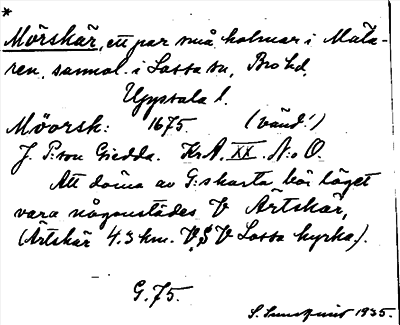 *
Mörskär, ett par små holmar i Mäla-
ren, sannol. i Lossa sn, Bro hd,
Uppsala l.
Möörsk: 1675. (vänd!)
J. P:son Giedda. Kr.A. XX. N:o O.
Att döma av G:s karta bör läget
vara någonstädes V Ärtskär,
(Ärtskär 4.3 km. V.S.V Lossa kyrka.).
G. 75.
S. 1935.